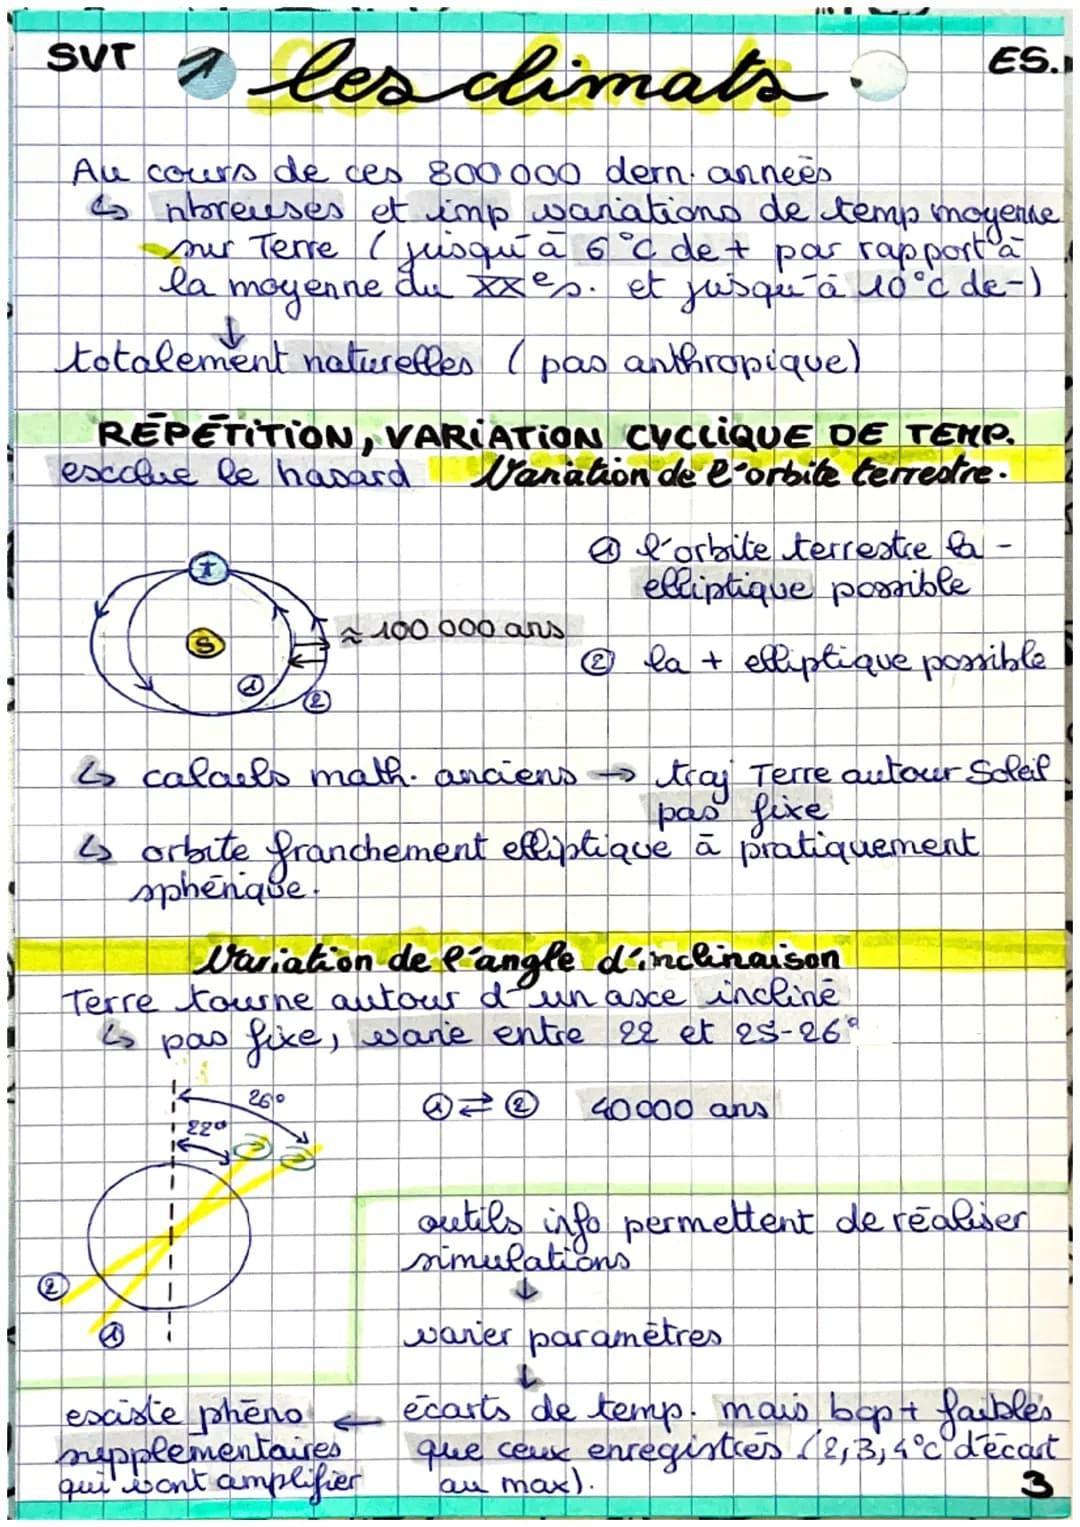 SVT 1 les climats ES.
Au cours de ces 800 000 dern. années
↳ nbreuses et imp variations de temp moyenne
sur Terre (jusqu'à 6°C de + par rapport à
la moyenne du XXe s. et jusqu'à 10°C de -)
↓
totalement naturelles (pas anthropique)
RÉPÉTITION, VARIATION CYCLIQUE DE TEMP.
exclue le hasard Variation de l'orbite terrestre.
① l'orbite terrestre la -
elliptique possible
T
S
≈ 100 000 ans
② la + elliptique possible
①
②
↳ calculs math. anciens → traj Terre autour Soleil
pas fixe
↳ orbite franchement elliptique à pratiquement
sphérique.
Variation de l'angle d'inclinaison
Terre tourne autour d'un axe incliné
↳ pas fixe, varie entre 22 et 25-26°
26°
① ⇄ ② 40 000 ans
22°
outils info permettent de réaliser
simulations
②
↓
①
varier paramètres
↓
existe phéno ← écarts de temp. mais bcp + faibles
supplémentaires que ceux enregistrés (2,3,4°C d'écart
qui vont amplifier au max).
3